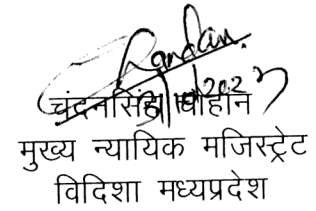 चंदनसिंह चौहान
मुख्य न्यायिक मजिस्ट्रेट
विदिशा मध्यप्रदेश